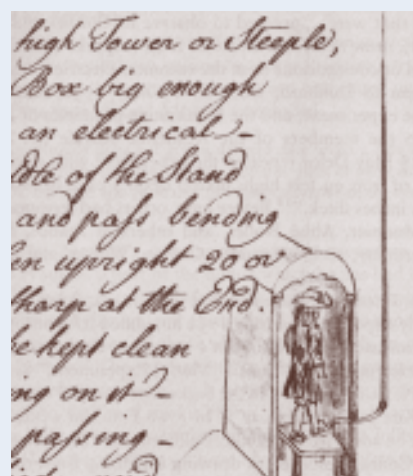 high Tower or Steeple,
Box big enough
an electrical
ddle of the Stand
and pass bending
en upright 20 or
sharp at the End.
be kept clean
ng on it
passing